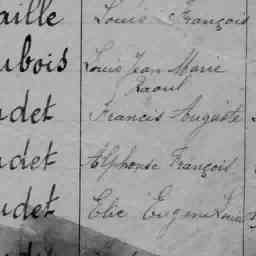 aille Louis François
ubois Louis Jean Marie
Raoul
udet Francis Auguste
udet Alphonse François
udet Elie Eugène Louis